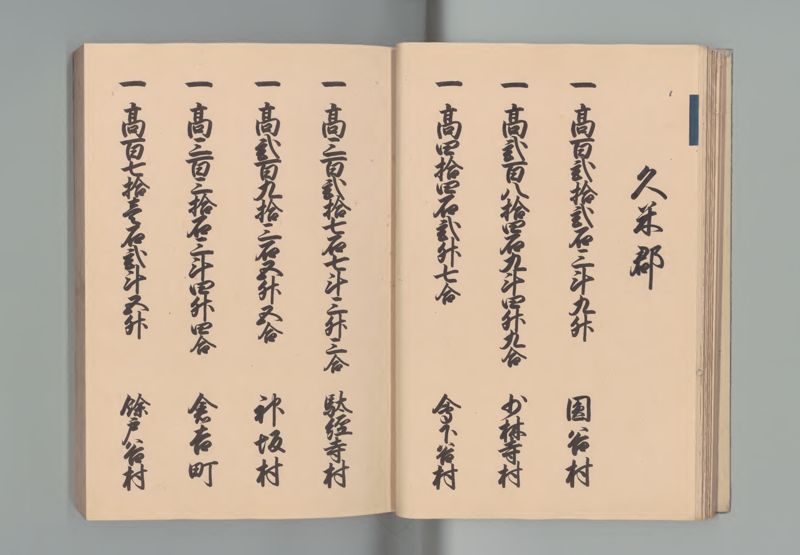 久米郡
一 高百弐拾弐石三斗九升 国谷村
一 高弐百八拾四石九斗四升九合 少林寺村
一 高四拾四石弐升七合 下谷村
一 高三百弐拾七石七斗三升三合 駄経寺村
一 高弐百九拾三石五升五合 神坂村
一 高三百三拾石三斗四升四合 倉吉町
一 高百七拾壱石弐斗五升 餘戸谷村